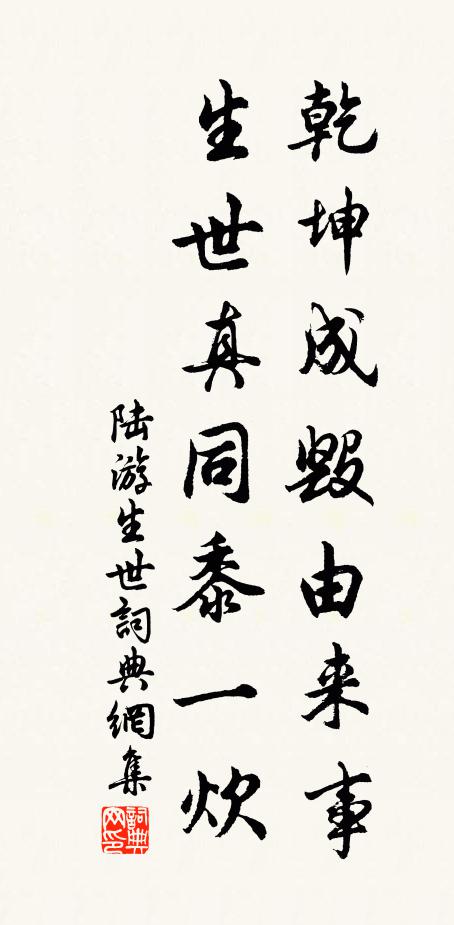 乾坤成毀由来事
生世真同黍一炊
陆游生世詞典網集
詞典网印